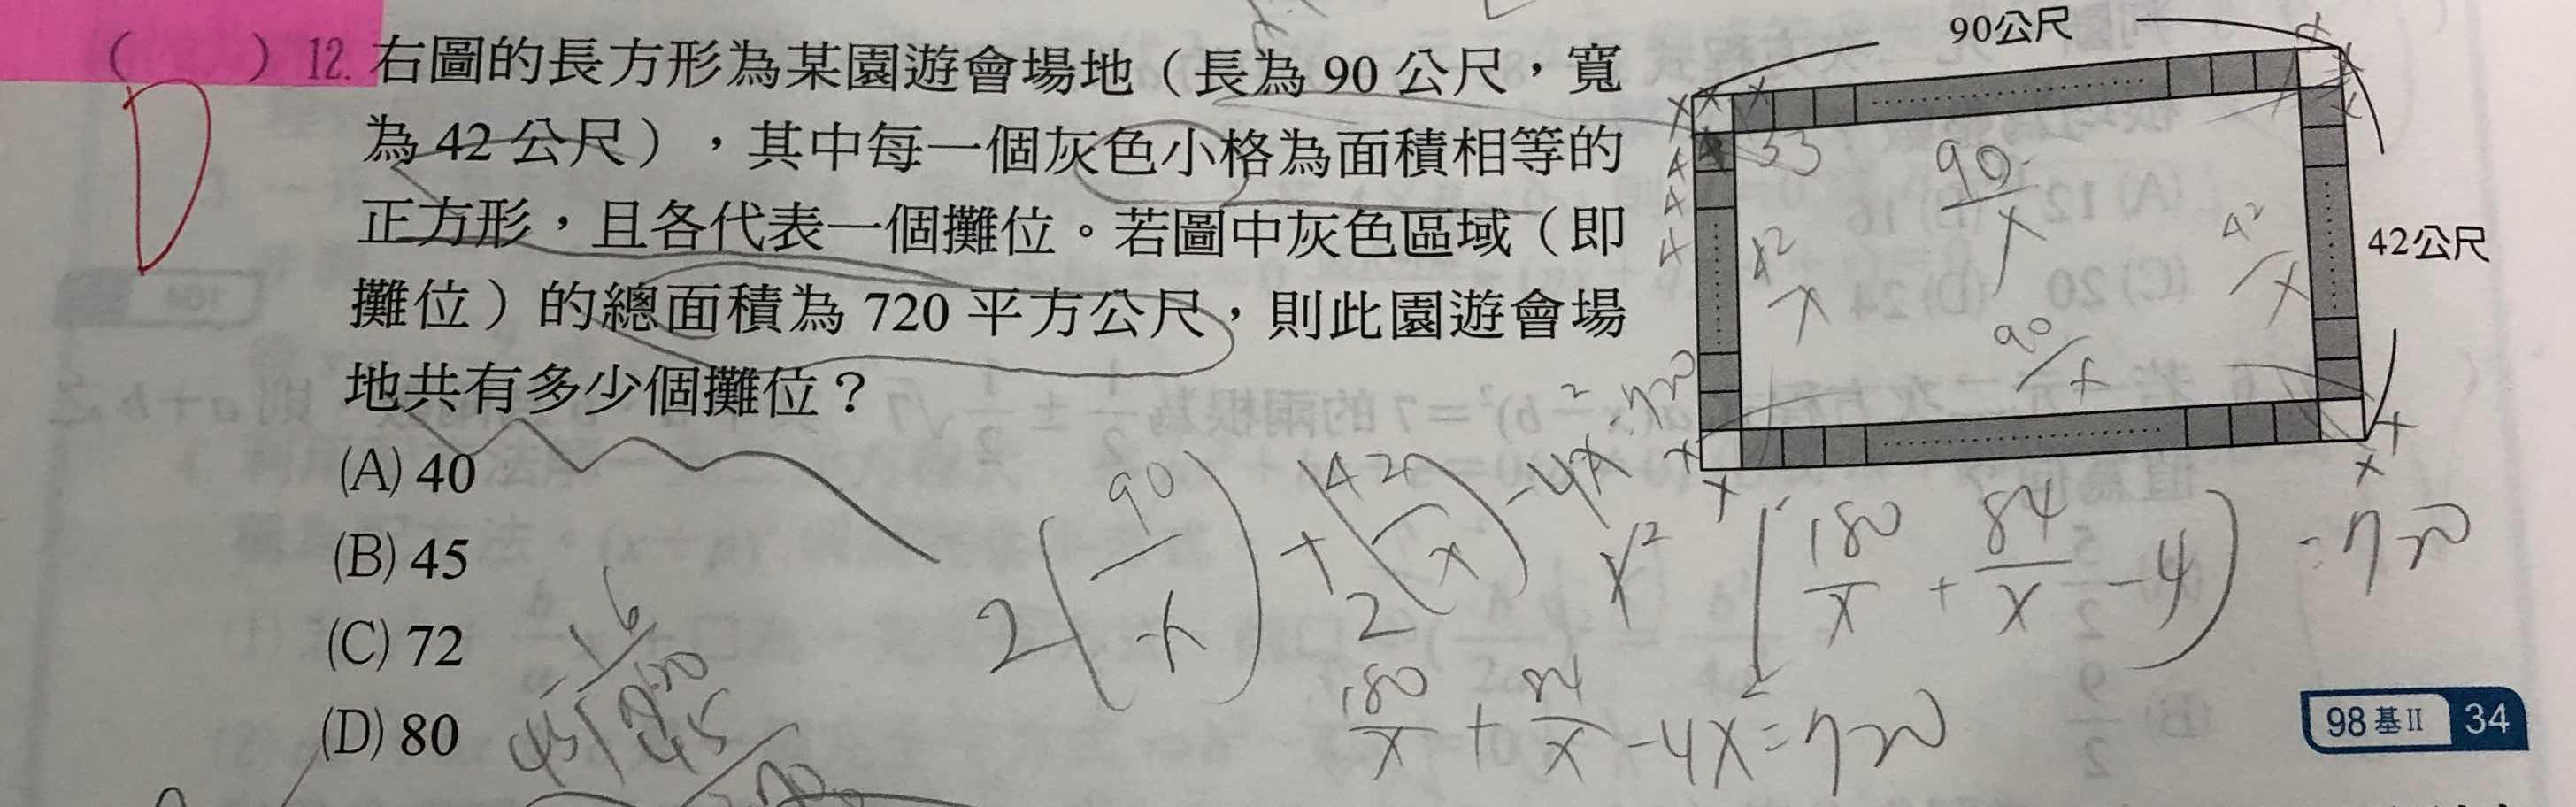 90公尺
(　　) 12. 右圖的長方形為某園遊會場地（長為 90 公尺，寬
為 42 公尺），其中每一個灰色小格為面積相等的
正方形，且各代表一個攤位。若圖中灰色區域（即
攤位）的總面積為 720 平方公尺，則此園遊會場
地共有多少個攤位？
42公尺
(A) 40
(B) 45
(C) 72
(D) 80
D
90/x
42/x
42/x
90/x
2(90/x) + 2(42/x) - 4x² = 720
x² (180/x + 84/x - 4) = 720
180/x + 84/x - 4x² = 720
98基II 34